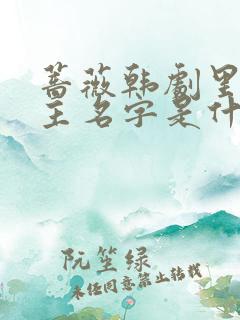 蔷薇韩剧里
主名字是什
阮笙绿
未经同意禁止转载